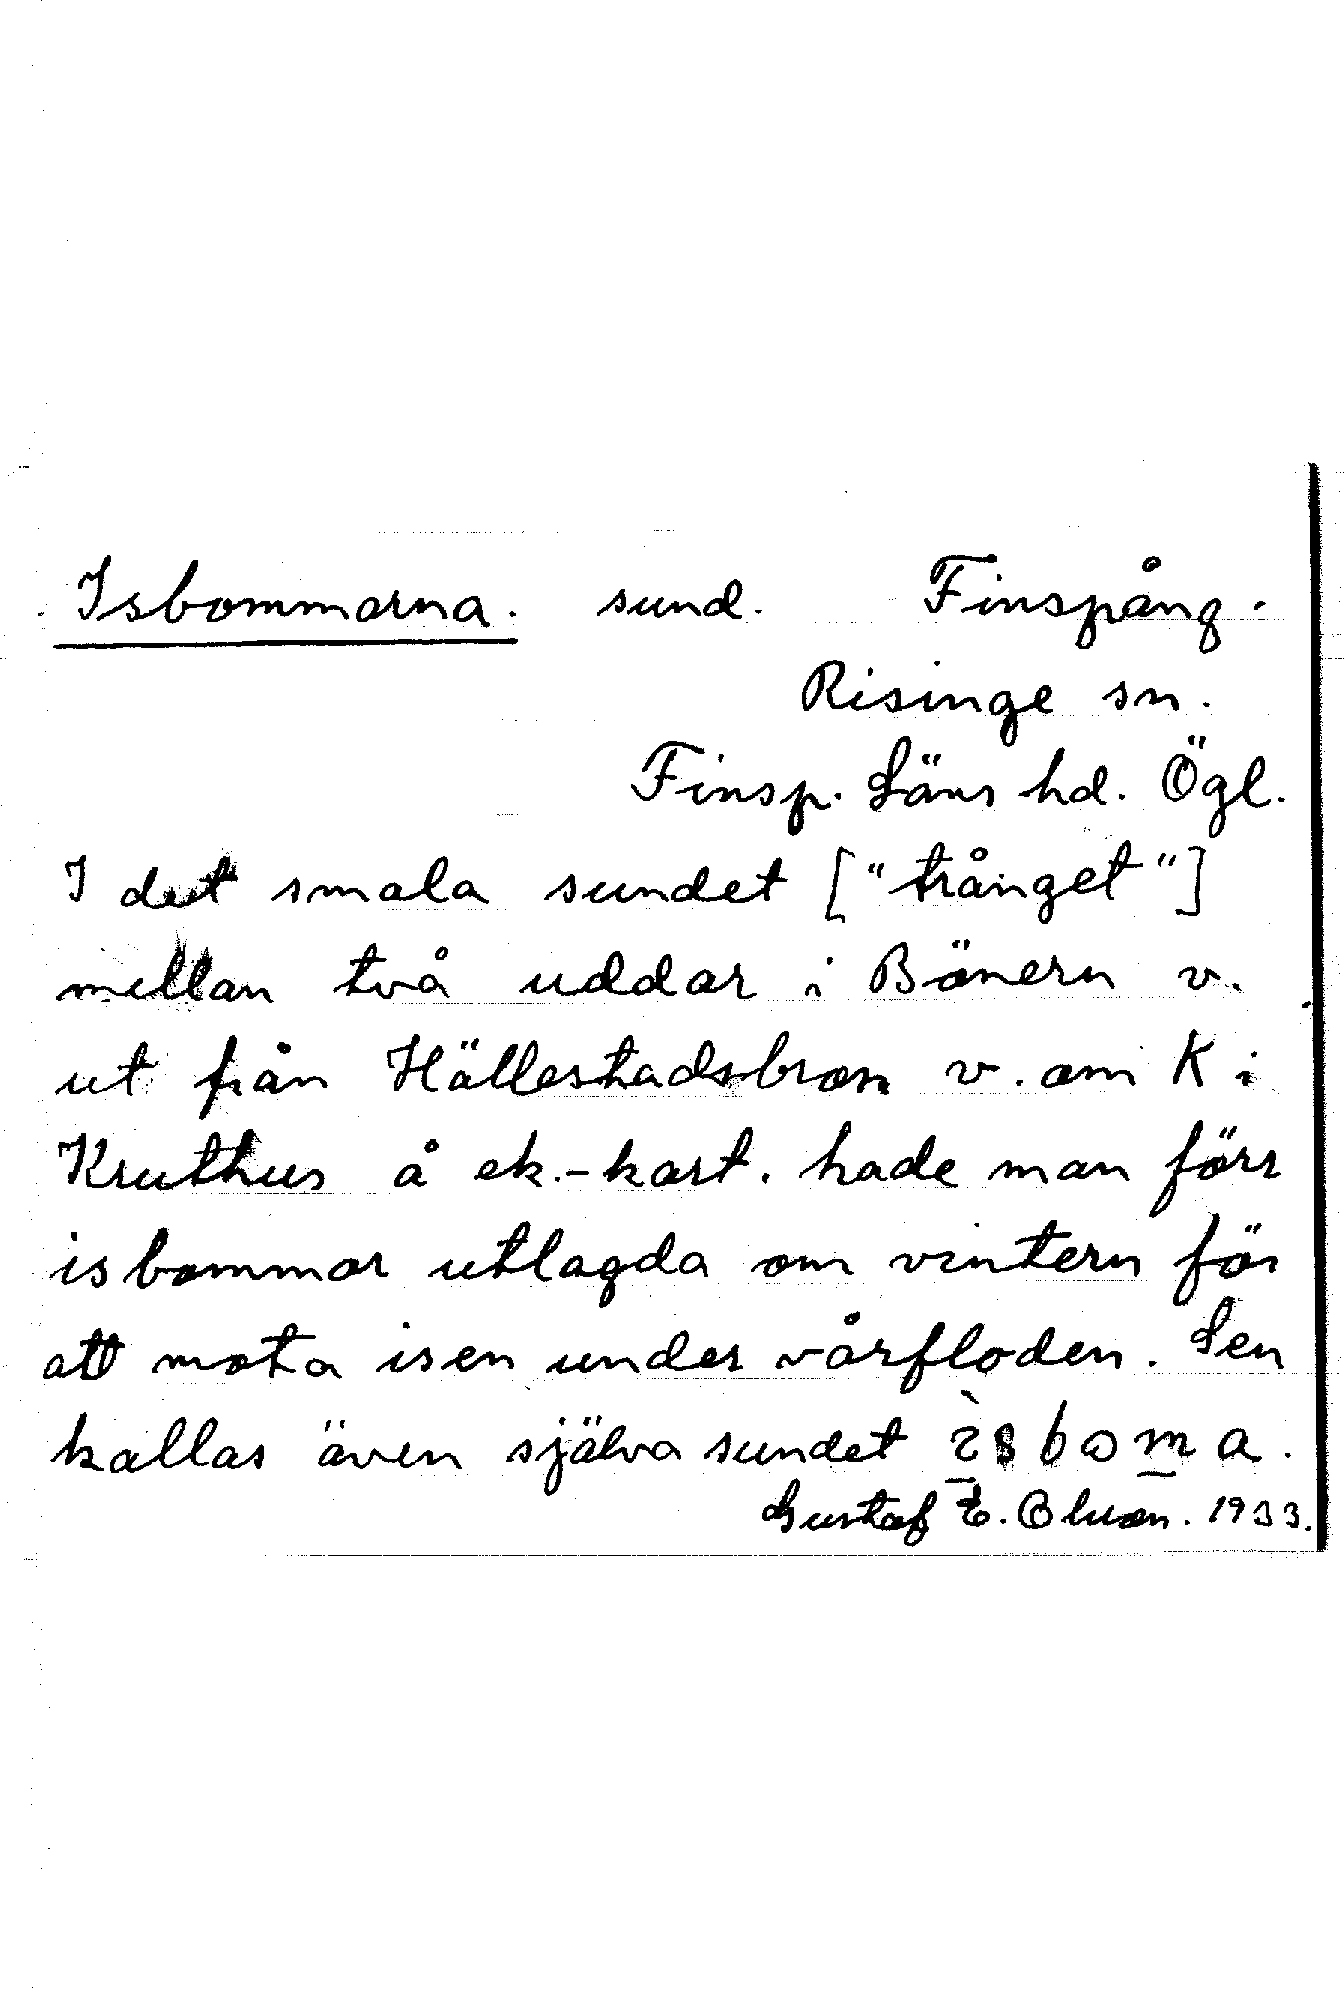 Isbommarna. sund. Finspång.
Risinge sn.
Finsp. Läns hd. Ögl.
I det smala sundet ["trånget"]
mellan två uddar i Bönern v.
ut från Hällestadsbron v. om K i
Kruthus å ek.-kart. hade man förr
isbommar utlagda om vintern för
att mota isen under vårfloden. Sen
kallas även själva sundet ìsboma.
Gustaf E. 1933.